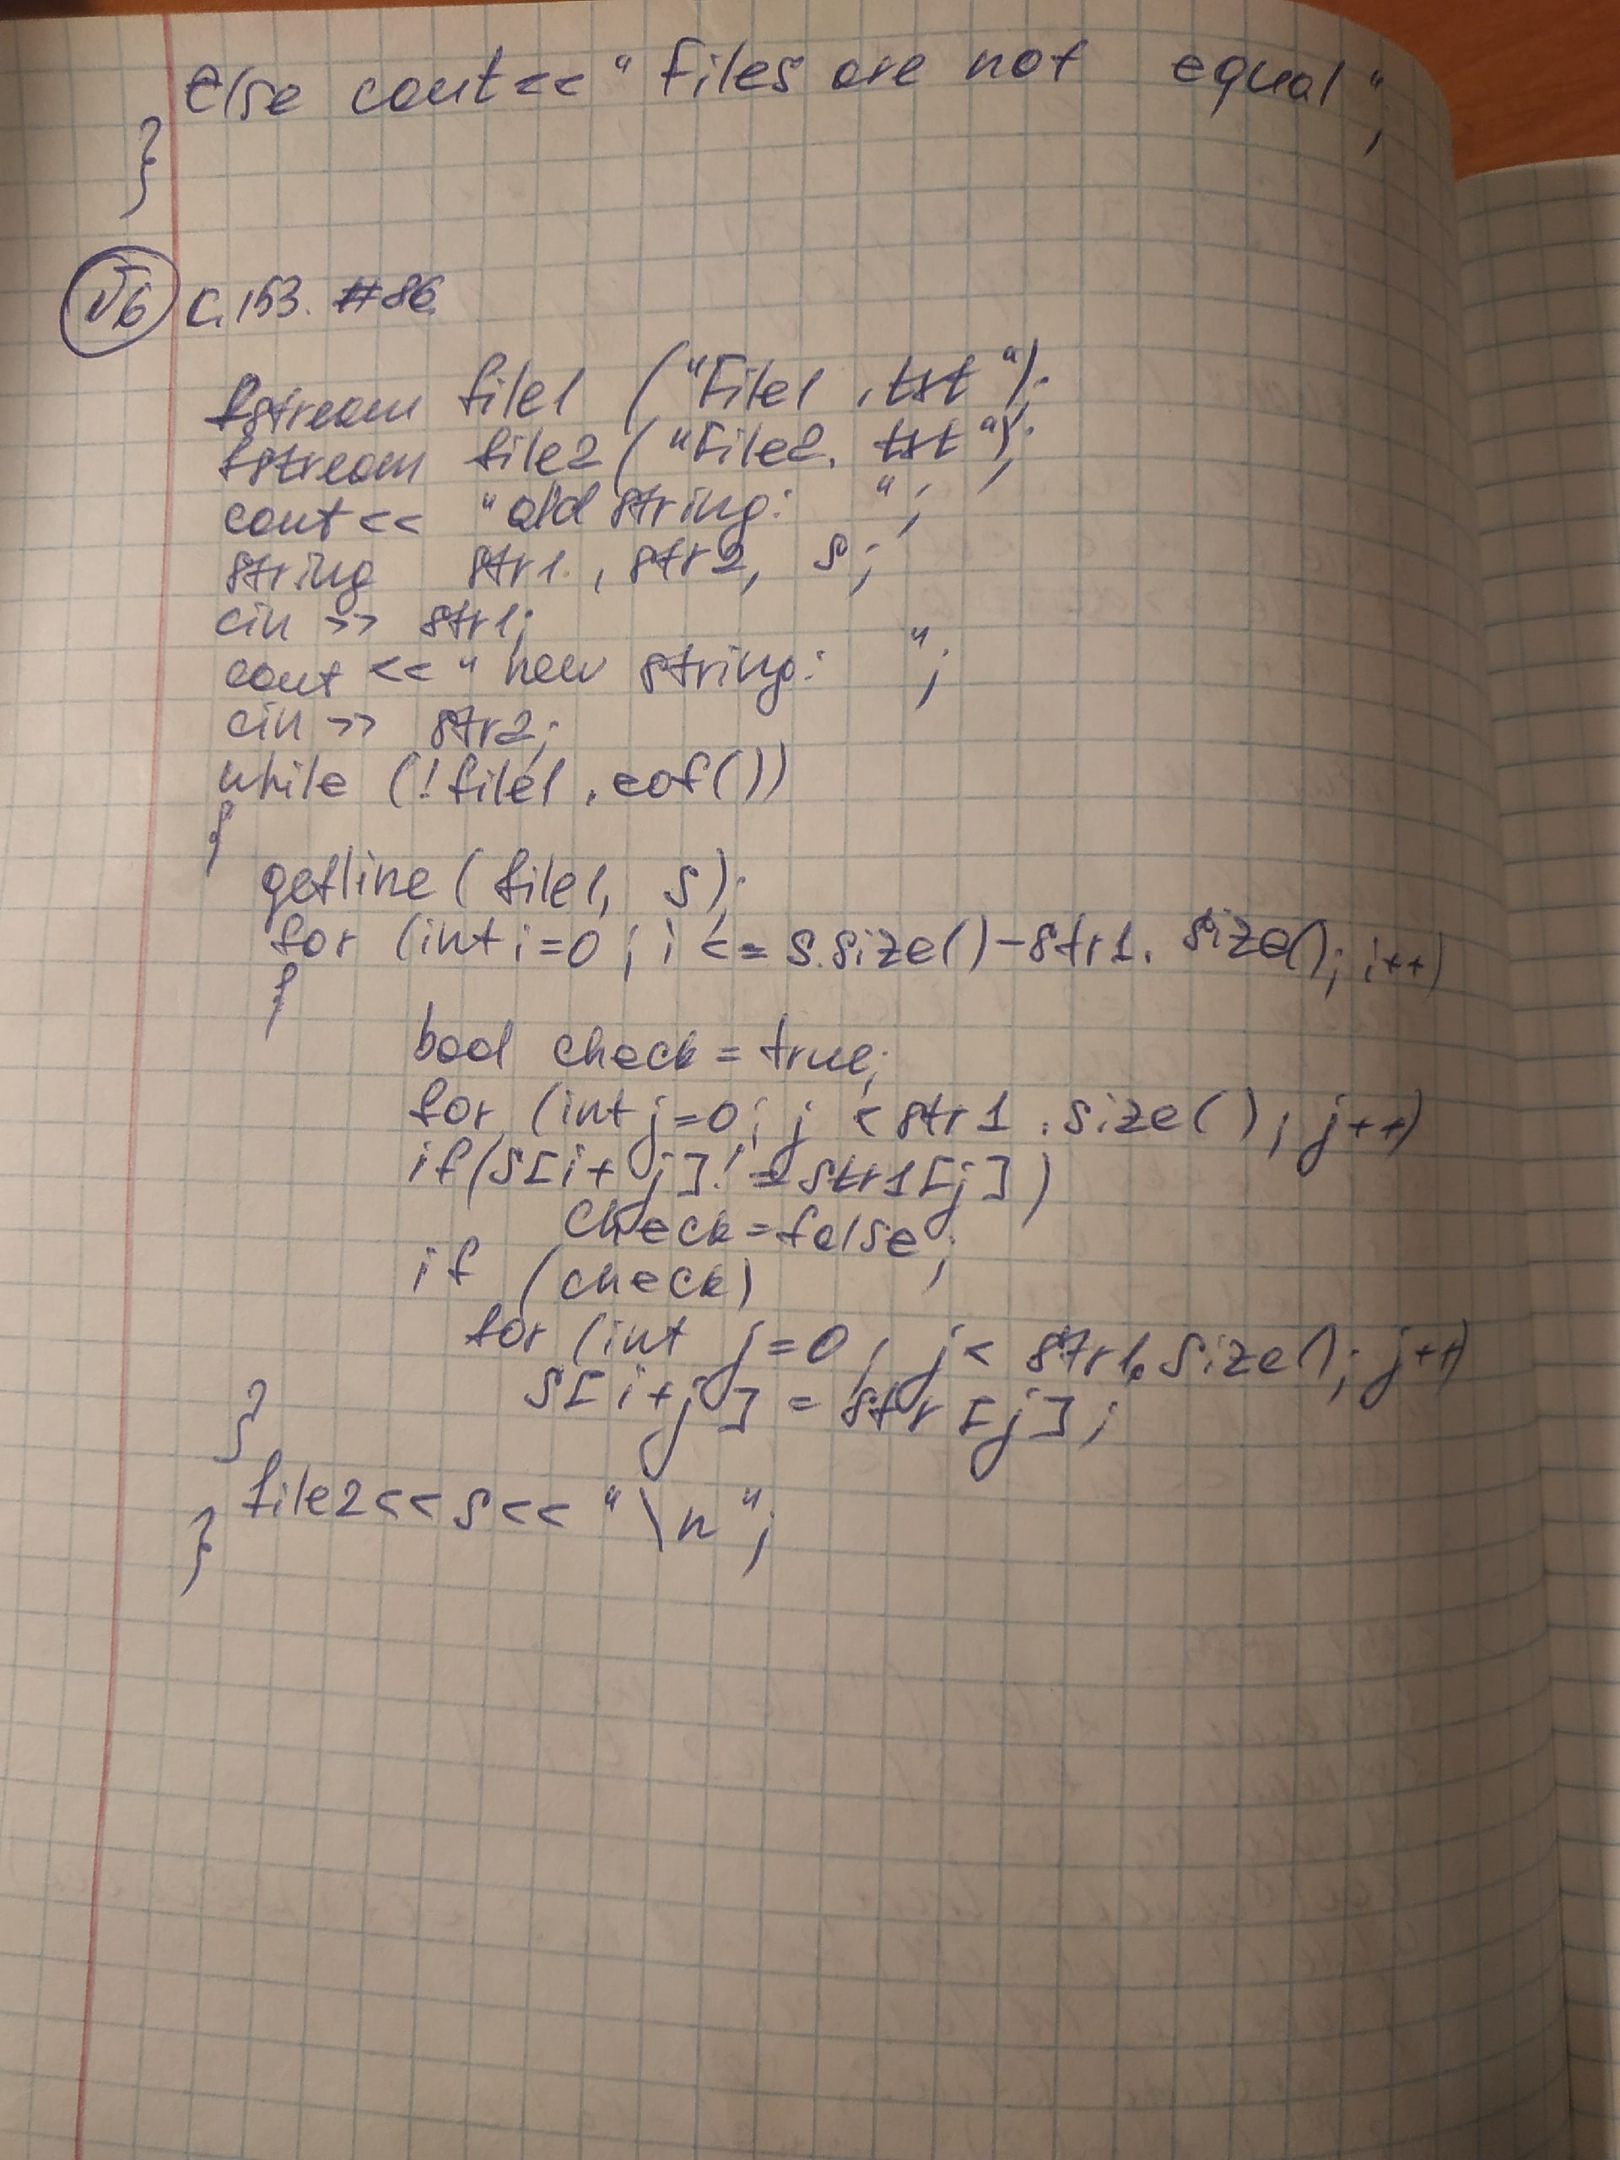 Else cout << "Files are not equal";
}
√6 С. 153. #86
fstream file1 ("File1.txt");
fstream file2 ("File2.txt");
cout << "old string: ";
string str1, str2, s;
cin >> str1;
cout << "new string: ";
cin >> str2;
while (!file1.eof())
{
getline (file1, s);
for (int i=0; i <= s.size()-str1.size(); i++)
{
bool check = true;
for (int j=0; j < str1.size(); j++)
if (s[i+j] != str1[j])
check = false;
if (check)
for (int j=0; j < str1.size(); j++)
s[i+j] = str[j];
}
file2 << s << "\n";
}